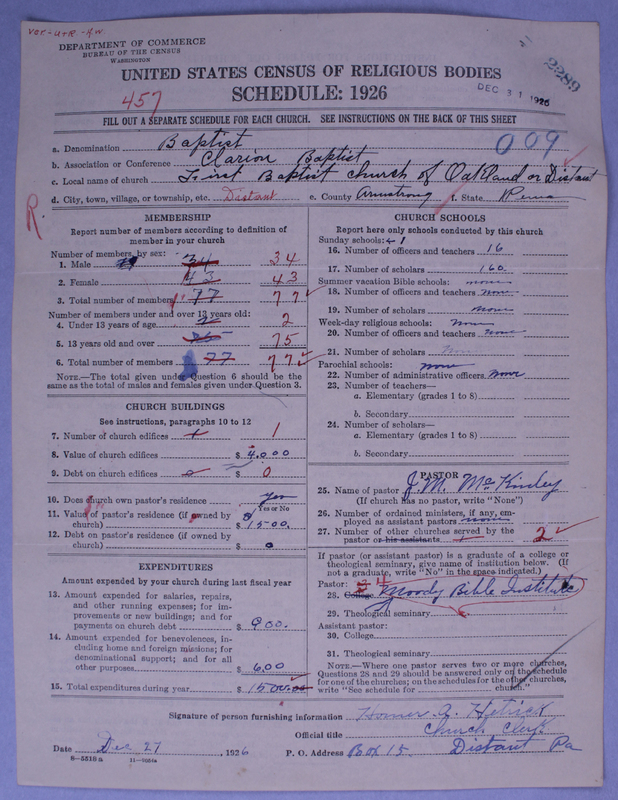 Var-U+R-H.W.
DEPARTMENT OF COMMERCE
BUREAU OF THE CENSUS
WASHINGTON
2289
UNITED STATES CENSUS OF RELIGIOUS BODIES
SCHEDULE: 1926
DEC 31 1926
457
FILL OUT A SEPARATE SCHEDULE FOR EACH CHURCH. SEE INSTRUCTIONS ON THE BACK OF THIS SHEET
009
a. Denomination Baptist
b. Association or Conference Clarion Baptist
c. Local name of church First Baptist church of Oakland or Distant
d. City, town, village, or township, etc. Distant e. County Armstrong f. State Penna
R.
MEMBERSHIP
Report number of members according to definition of
member in your church
Number of members, by sex:
1. Male 34 34
2. Female 43 43
3. Total number of members 77 77
Number of members under and over 13 years old:
4. Under 13 years of age 2
5. 13 years old and over 75
6. Total number of members 77 77
NOTE.—The total given under Question 6 should be the
same as the total of males and females given under Question 3.
CHURCH BUILDINGS
See instructions, paragraphs 10 to 12
7. Number of church edifices 1 1
8. Value of church edifices $ 4,000
9. Debt on church edifices 0 $ 0
10. Does church own pastor's residence Yes
Yes or No
11. Value of pastor's residence (if owned by
church) $ 1500.
12. Debt on pastor's residence (if owned by
church) $ 0
EXPENDITURES
Amount expended by your church during last fiscal year
13. Amount expended for salaries, repairs,
and other running expenses; for im-
provements or new buildings; and for
payments on church debt $ 900.
14. Amount expended for benevolences, in-
cluding home and foreign missions; for
denominational support; and for all
other purposes $ 600
15. Total expenditures during year $ 1500.00
CHURCH SCHOOLS
Report here only schools conducted by this church
Sunday schools: 1
16. Number of officers and teachers 16
17. Number of scholars 160.
Summer vacation Bible schools: none
18. Number of officers and teachers none
19. Number of scholars none
Week-day religious schools: none
20. Number of officers and teachers none
21. Number of scholars none
Parochial schools: none
22. Number of administrative officers none
23. Number of teachers—
a. Elementary (grades 1 to 8)
b. Secondary
24. Number of scholars—
a. Elementary (grades 1 to 8)
b. Secondary
PASTOR
25. Name of pastor J. M. McKinley
(If church has no pastor, write "None")
26. Number of ordained ministers, if any, em-
ployed as assistant pastors none
27. Number of other churches served by the
pastor or his assistants 1 2
If pastor (or assistant pastor) is a graduate of a college or
theological seminary, give name of institution below. (If
not a graduate, write "No" in the space indicated.)
Pastor: 4
28. College Moody Bible Institute
29. Theological seminary
Assistant pastor:
30. College
31. Theological seminary
NOTE.—Where one pastor serves two or more churches,
Questions 28 and 29 should be answered only on the schedule
for one of the churches; on the schedules for the other churches,
write "See schedule for church."
Signature of person furnishing information Homer A. Hetrick
Official title Church Clerk
Date Dec 27, 1926 P. O. Address Box 15. Distant Pa
8-5518 a